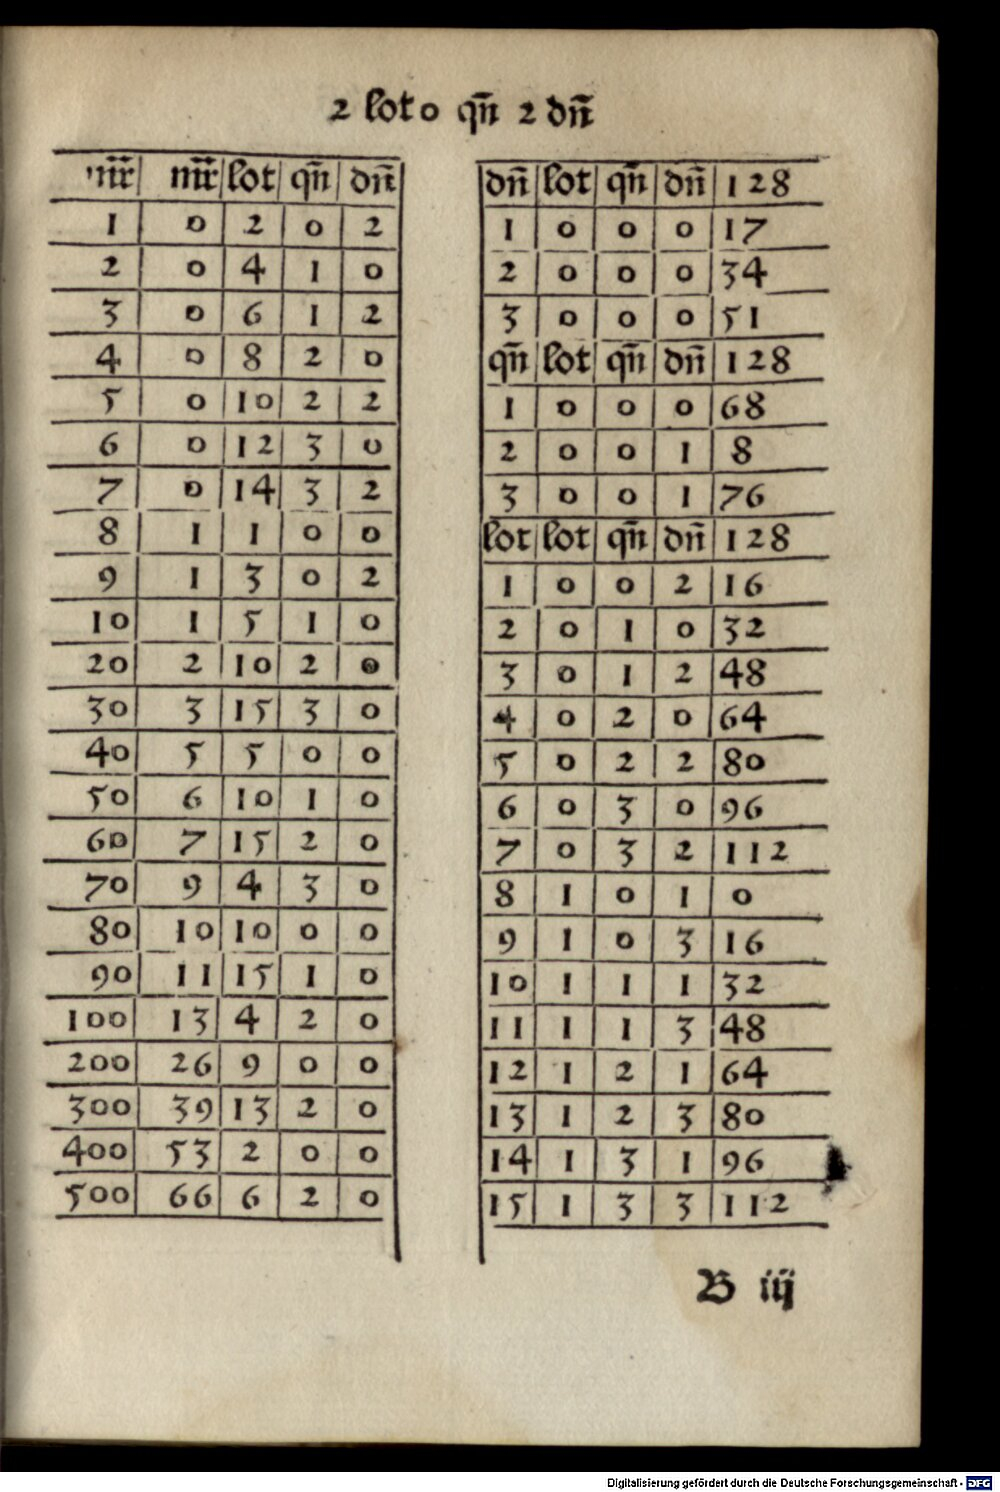 2 lot 0 qn̄ 2 dn̄
mr̄ mr̄ lot qn̄ dn̄
1 0 2 0 2
2 0 4 1 0
3 0 6 1 2
4 0 8 2 0
5 0 10 2 2
6 0 12 3 0
7 0 14 3 2
8 1 1 0 0
9 1 3 0 2
10 1 5 1 0
20 2 10 2 0
30 3 15 3 0
40 5 5 0 0
50 6 10 1 0
60 7 15 2 0
70 9 4 3 0
80 10 10 0 0
90 11 15 1 0
100 13 4 2 0
200 26 9 0 0
300 39 13 2 0
400 53 2 0 0
500 66 6 2 0
dn̄ lot qn̄ dn̄ 128
1 0 0 0 17
2 0 0 0 34
3 0 0 0 51
qn̄ lot qn̄ dn̄ 128
1 0 0 0 68
2 0 0 1 8
3 0 0 1 76
lot lot qn̄ dn̄ 128
1 0 0 2 16
2 0 1 0 32
3 0 1 2 48
4 0 2 0 64
5 0 2 2 80
6 0 3 0 96
7 0 3 2 112
8 1 0 1 0
9 1 0 3 16
10 1 1 1 32
11 1 1 3 48
12 1 2 1 64
13 1 2 3 80
14 1 3 1 96
15 1 3 3 112
B iij
Digitalisierung gefördert durch die Deutsche Forschungsgemeinschaft - DFG